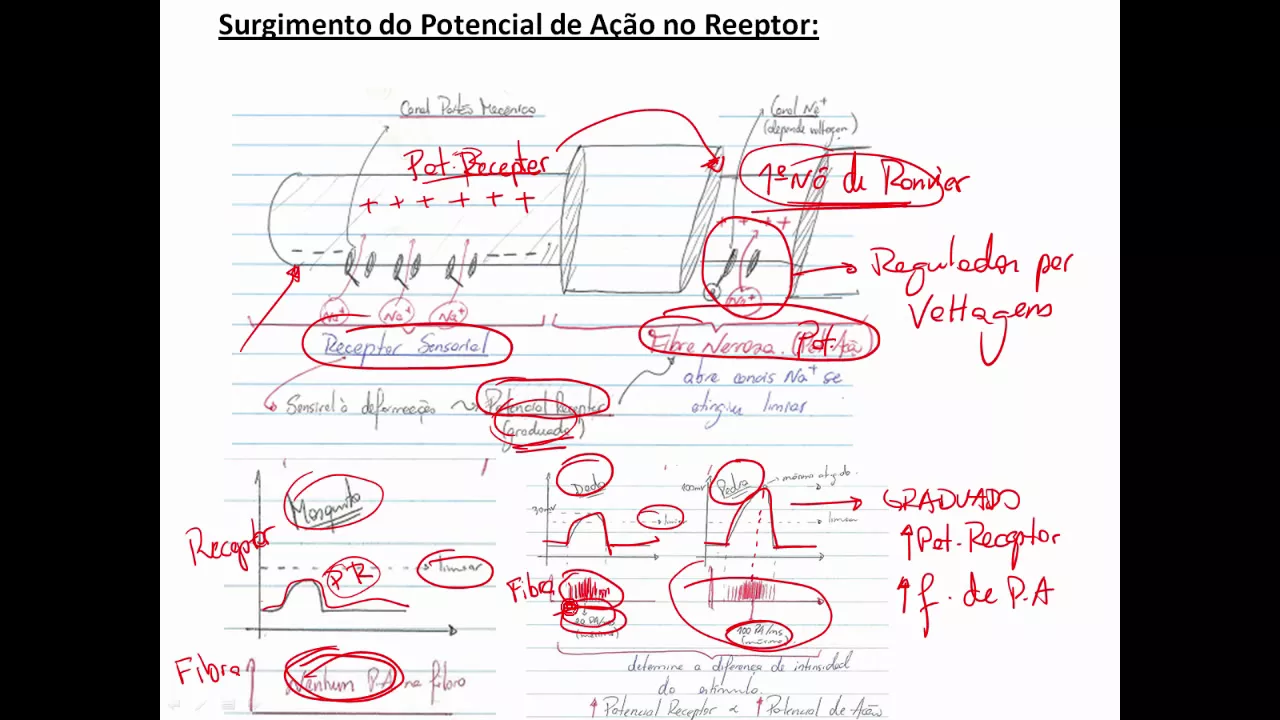 Surgimento do Potencial de Ação no Reeptor:
Canal Portão Mecânico
Canal Na⁺
(depende voltagem)
Pot. Receptor
1º Nó de Ranvier
+ + + + + +
+ + + +
Regulados por
Voltagens
Na⁺ Na⁺ Na⁺
Na⁺
Receptor Sensorial
Fibra Nervosa (Pot. Ação)
abre canais Na⁺ se
atingiu limiar
Sensível à deformação
Potencial Receptor
(graduado)
Mosquito
Receptor
PR
limiar
Fibra
Nenhum PA na fibra
Dedo
30mv
limiar
Pedra
100mv
máximo atingido
limiar
GRADUADO
↑ Pot. Receptor
↑ f. de P.A
Fibra
(máximo)
100 PA/ms
(máximo)
determina a diferença de intensidade
do estímulo.
↑ Potencial Receptor α ↑ Potencial de Ação